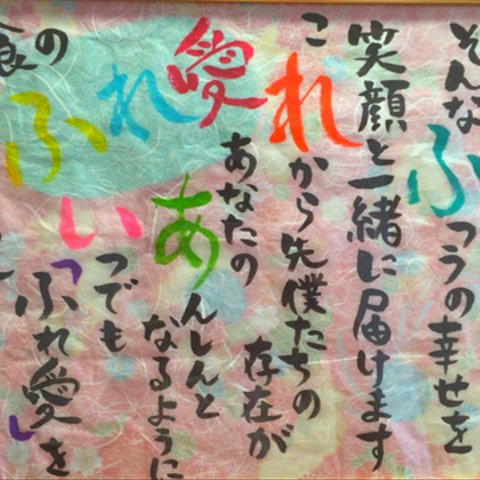 そんなふつうの幸せを
笑顔と一緒に届けます
これから先僕たちの
あなたの存在が
あんしんと
なるように
いつでも
「ふれ愛」を
ふれ愛
の
食